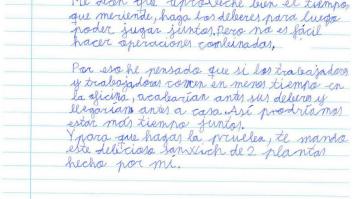 Me dicen que aproveche bien el tiempo,
que meriende, haga los deberes para luego
poder jugar juntos. Pero no es fácil
hacer operaciones combinadas.
Por eso he pensado que si los trabajadores
y trabajadoras comen en menos tiempo en
la oficina, acabarían antes sus deberes y
llegarían antes a casa. Así podríamos
estar más tiempo juntos.
Y para que hagas la prueba, te mando
este delicioso sanwich de 2 plantas
hecho por mi.